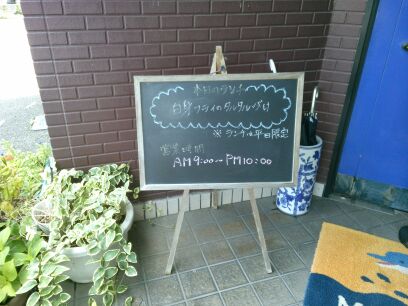 本日のランチ
白身フライのタルタルソースがけ
※ランチは平日限定
営業時間
AM9:00〜PM10:00